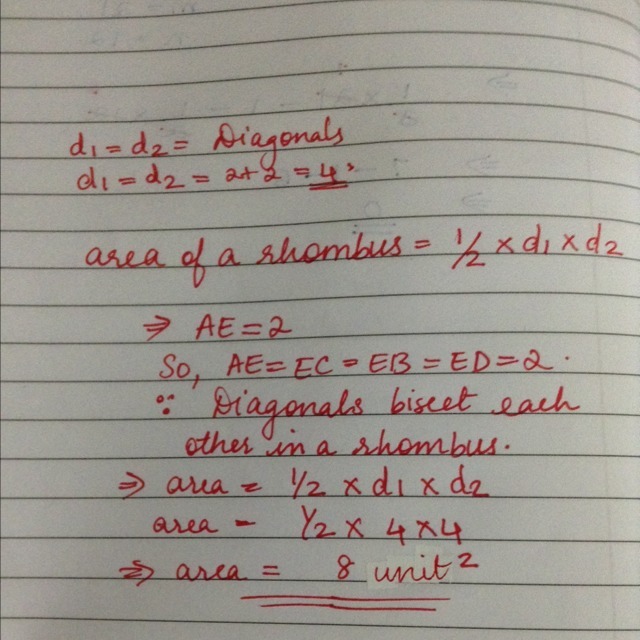 d1 = d2 = Diagonals
d1 = d2 = 2+2 = 4
area of a rhombus = 1/2 × d1 × d2
⇒ AE = 2
So, AE = EC = EB = ED = 2.
∵ Diagonals bisect each
other in a rhombus.
⇒ area = 1/2 × d1 × d2
area = 1/2 × 4 × 4
⇒ area = 8 unit²